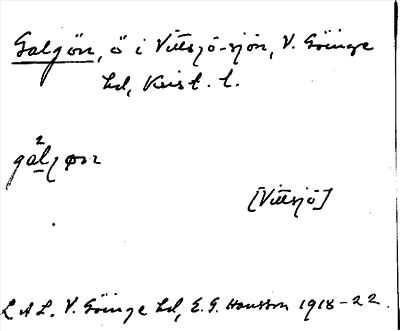 Galgön, ö i Vittsjö-sjön, V. Göinge
hd, Krist. l.
gal²gøn
[Vittsjö]
L A L. V. Göinge hd, E. G. Hansson 1918-22.